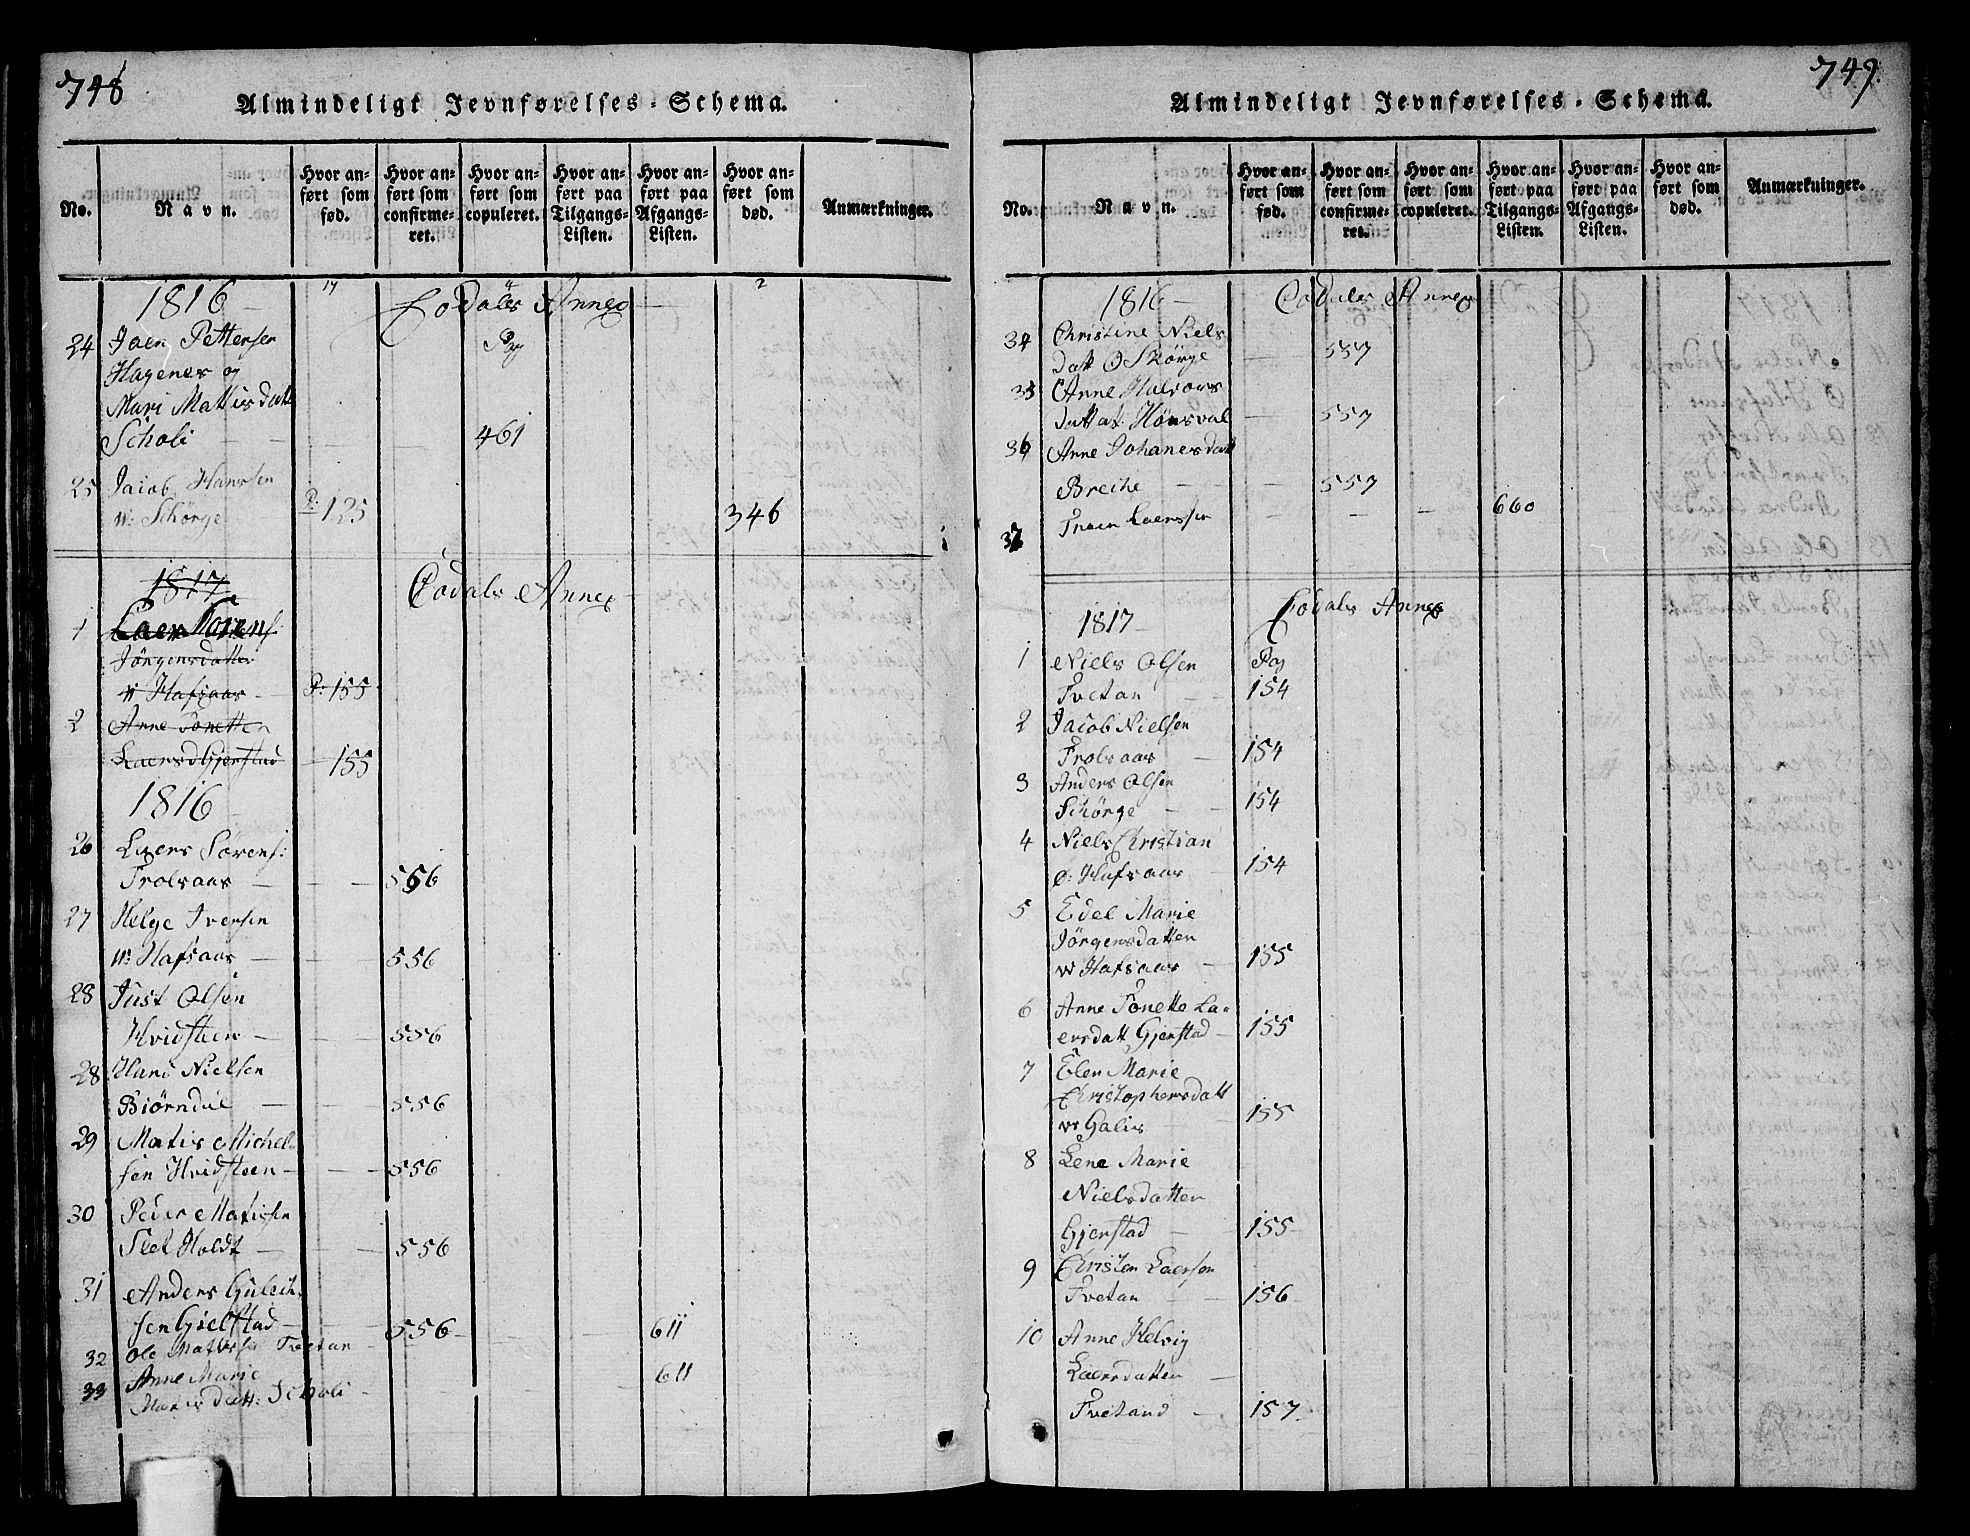 748
Almindeligt Jevnførelses-Schema.
No.
Navn.
Hvor anført som fød.
Hvor anført som confirmeret.
Hvor anført som copuleret.
Hvor anført paa Tilgangs-Listen.
Hvor anført paa Afgangs-Listen.
Hvor anført som død.
Anmærkninger.
1816 Eodals Annex
24 Jaen Pettersen Pag
Hagenes og
Mari Mattisdatt
Scholi 461
25 Jacob Hanssen
w: Schørge P: 125 346
1817 Eodals Annex
1
Jørgensdatter
w Hafsaas P: 155
2 Anne Tonette
Laersd Gjerstad 155
1816
26 Laers Sørens:
Trolsaas 556
27 Helge Iversen
w: Hafsaas 556
28 Just Olsen
Hvidsteen 556
28 Hans Nielsen
Biørndal 556
29 Matis Michel
sen Hvidsteen 556
30 Peder Matissen
Holdt 556
31 Anders
sen Gielstad 556 611
32 Ole Tvetan
33 Anne Marie 611
Matisdatt: Scholi
749
Almindeligt Jevnførelses-Schema.
No.
Navn.
Hvor anført som fød.
Hvor anført som confirmeret.
Hvor anført som copuleret.
Hvor anført paa Tilgangs-Listen.
Hvor anført paa Afgangs-Listen.
Hvor anført som død.
Anmærkninger.
1816 Eodals Annex
34 Christine Niels
datt Ø Skørge 557
35 Anne Halvors
datt Hønsval 557
36 Anne Johanesdatt
Breche 557
37 Laerssen 660
1817 Eodals Annex
1 Niels Olsen Pag
Tvetan 154
2 Jacob Nielsen
Trolsaas 154
3 Anders Olsen
Schørge 154
4 Niels Christian
Ø: Hafsaas 154
5 Edel Marie
Jørgensdatter
w Hafsaas 155
6 Anne Tonette La-
ersdatt Gjerstad 155
7 Elen Marie
Christophersdatt
w Galis 155
8 Lene Marie
Nielsdatter
Gjerstad 155
9 Christen Laersen
Tvetan 156
10 Anne Helvig
Laersdatter
Tvetand 157